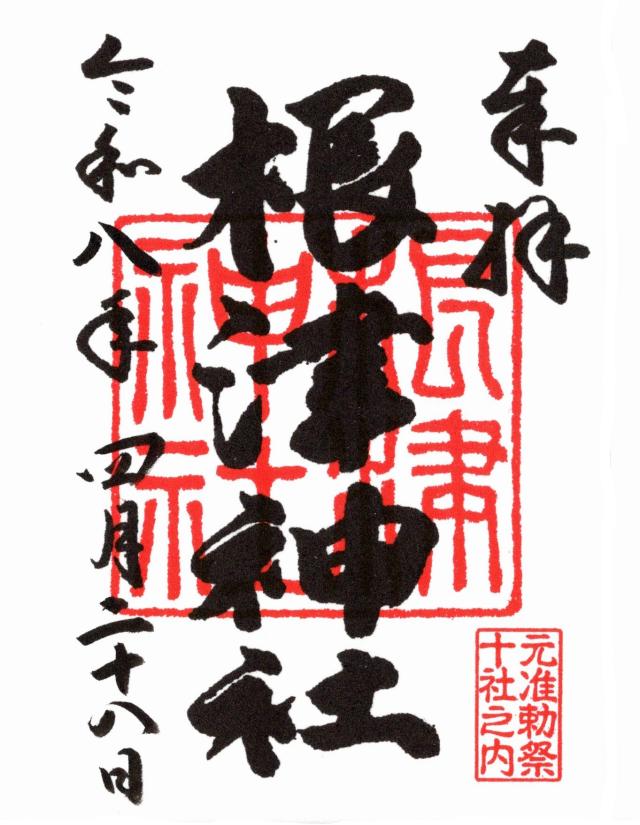 奉拝
根津神社
根津神社
令和八年四月二十八日
元准勅祭
十社之内